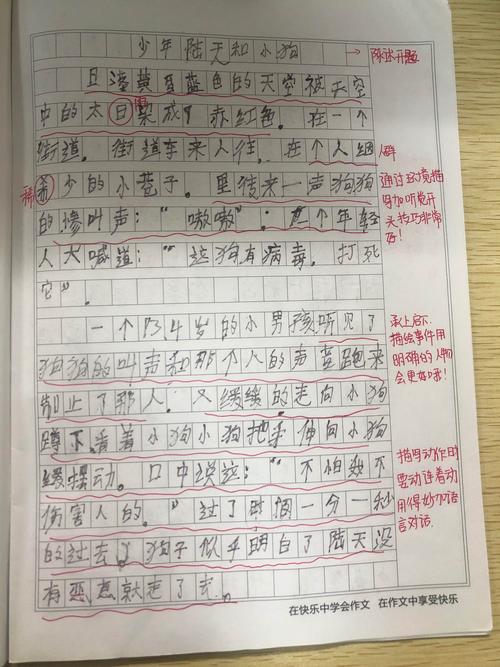 少年陆天和小狗
→ 陈述开题
且黄昏蓝色的天空被天空
中的太日染成了赤红色。在一个
街道。街道车来人往,在个人烟
人群
稀
希少的小巷子。里传来一声狗狗
的惨叫声:“嗷嗷”:一个年轻
人大喊道:“这狗有病毒。打死
它”。
通过环境描
写加听觉开
头技巧非常
好!
一个13,4岁的小男孩听见了
狗狗的叫声和那个人的声音跑来
制止了那人。又缓缓的走向小狗
蹲下,看着小狗小狗把手伸向小狗
缓慢动。口中说道:“不怕我不
伤害人的。”过了时间一分一秒
的过去了狗子似乎明白了陆天没
有恶意就走了去。
承上启下.
描绘事件用
明确的人物
会更好哦!
描写动作时
要动连着动
用得妙加语
言对话.
在快乐中学会作文 在作文中享受快乐